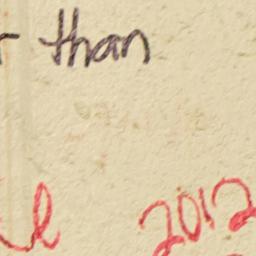 than
2012